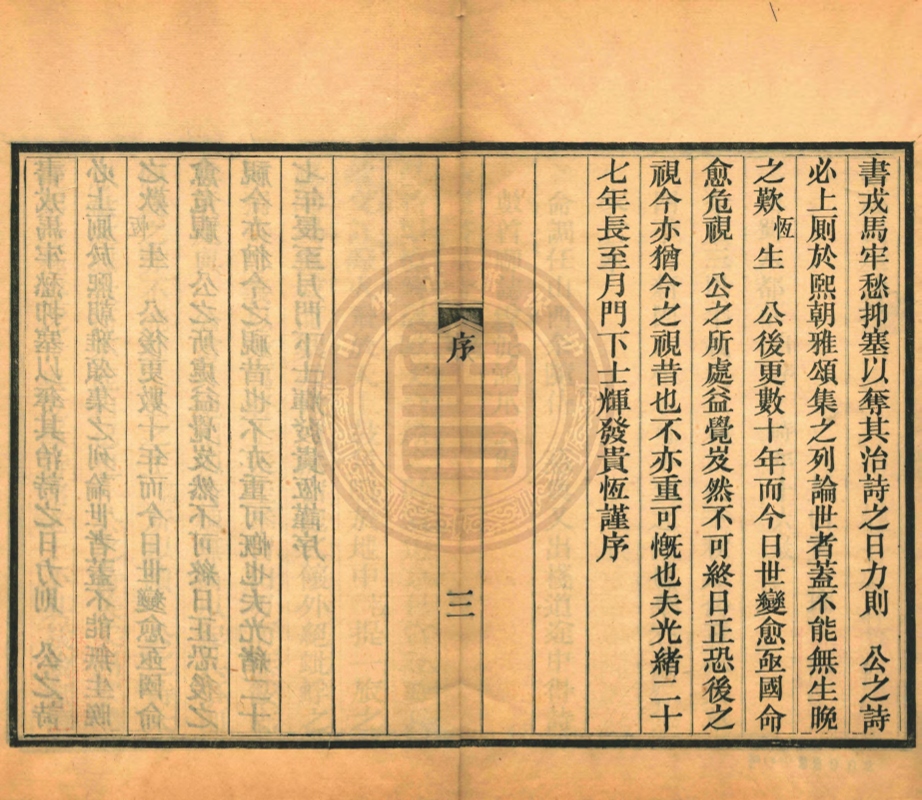 書戎馬牢愁抑塞以奪其治詩之日力則　公之詩
必上厠於熙朝雅頌集之列論世者蓋不能無生晚
之歎恆生　公後更數十年而今日世變愈亟國命
愈危視　公之所處益覺岌然不可終日正恐後之
視今亦猶今之視昔也不亦重可慨也夫光緒二十
七年長至月門下士輝發貴恆謹序
序
三